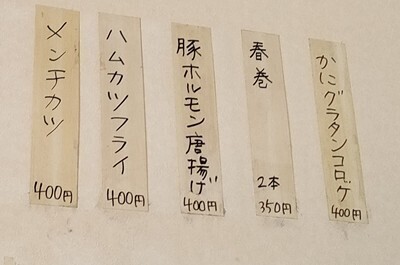 かにグラタンコロッケ
400円
春巻
2本
350円
豚ホルモン唐揚げ
400円
ハムカツフライ
400円
メンチカツ
400円